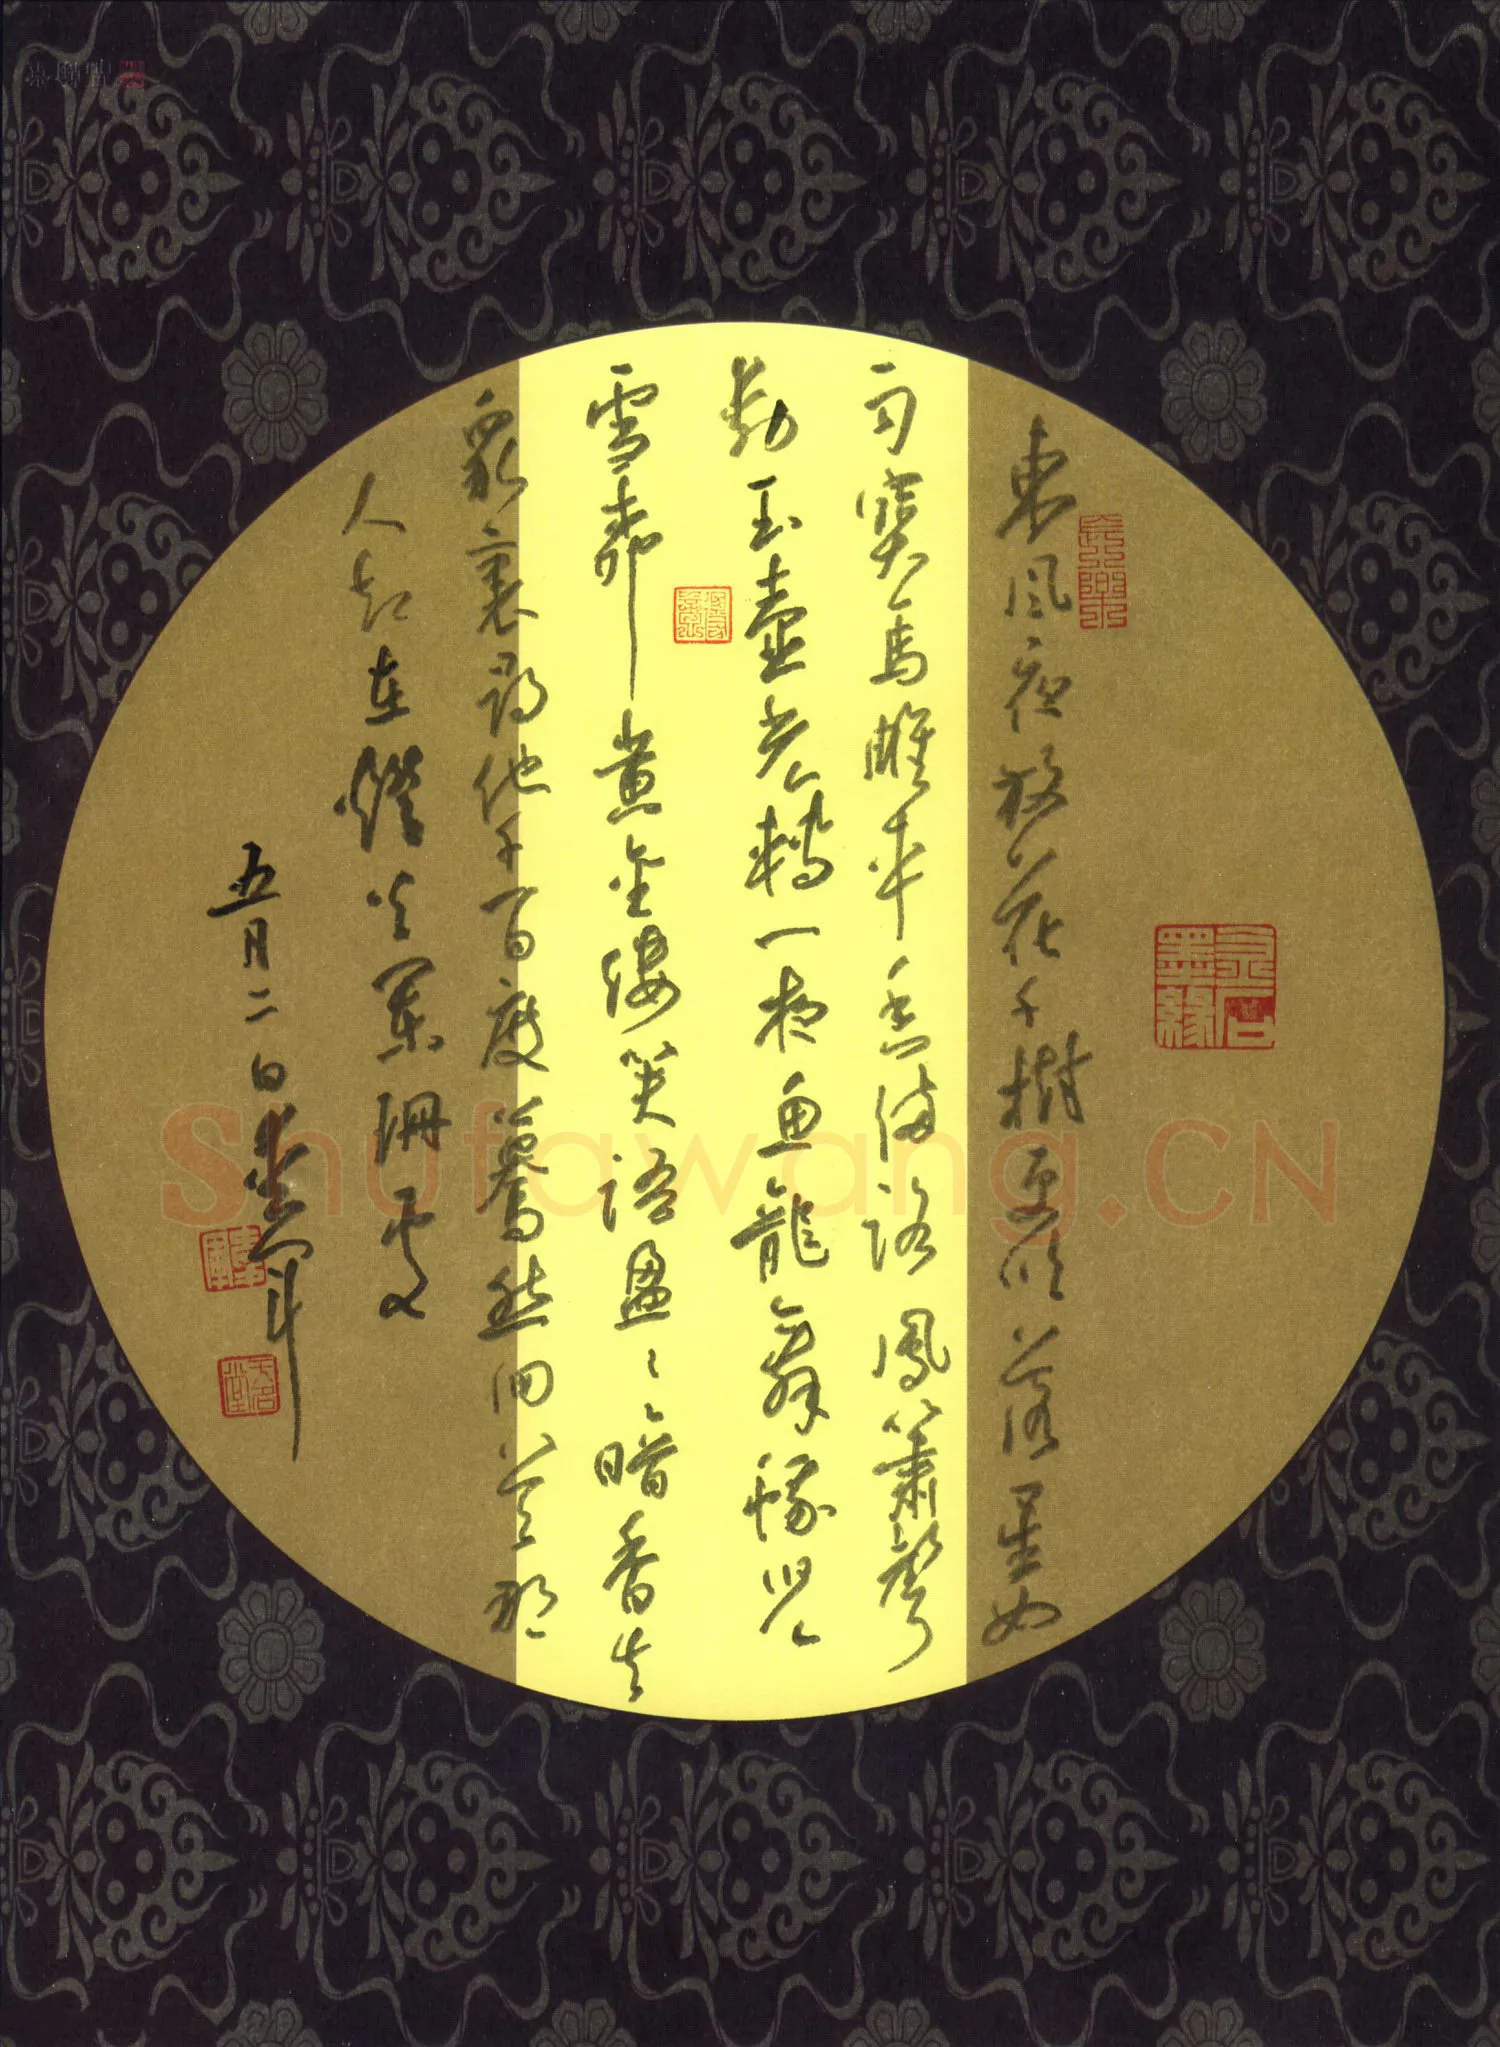 長樂
金石墨緣
東風夜放花千樹更吹落星如
雨寶馬雕車香滿路鳳簫聲
動玉壺光轉一夜魚龍舞蛾兒
雪柳黄金縷笑語盈〻暗香去
眾裏尋他千百度驀然回首那
人卻在燈火闌珊處
五月二日
Shufawang.CN